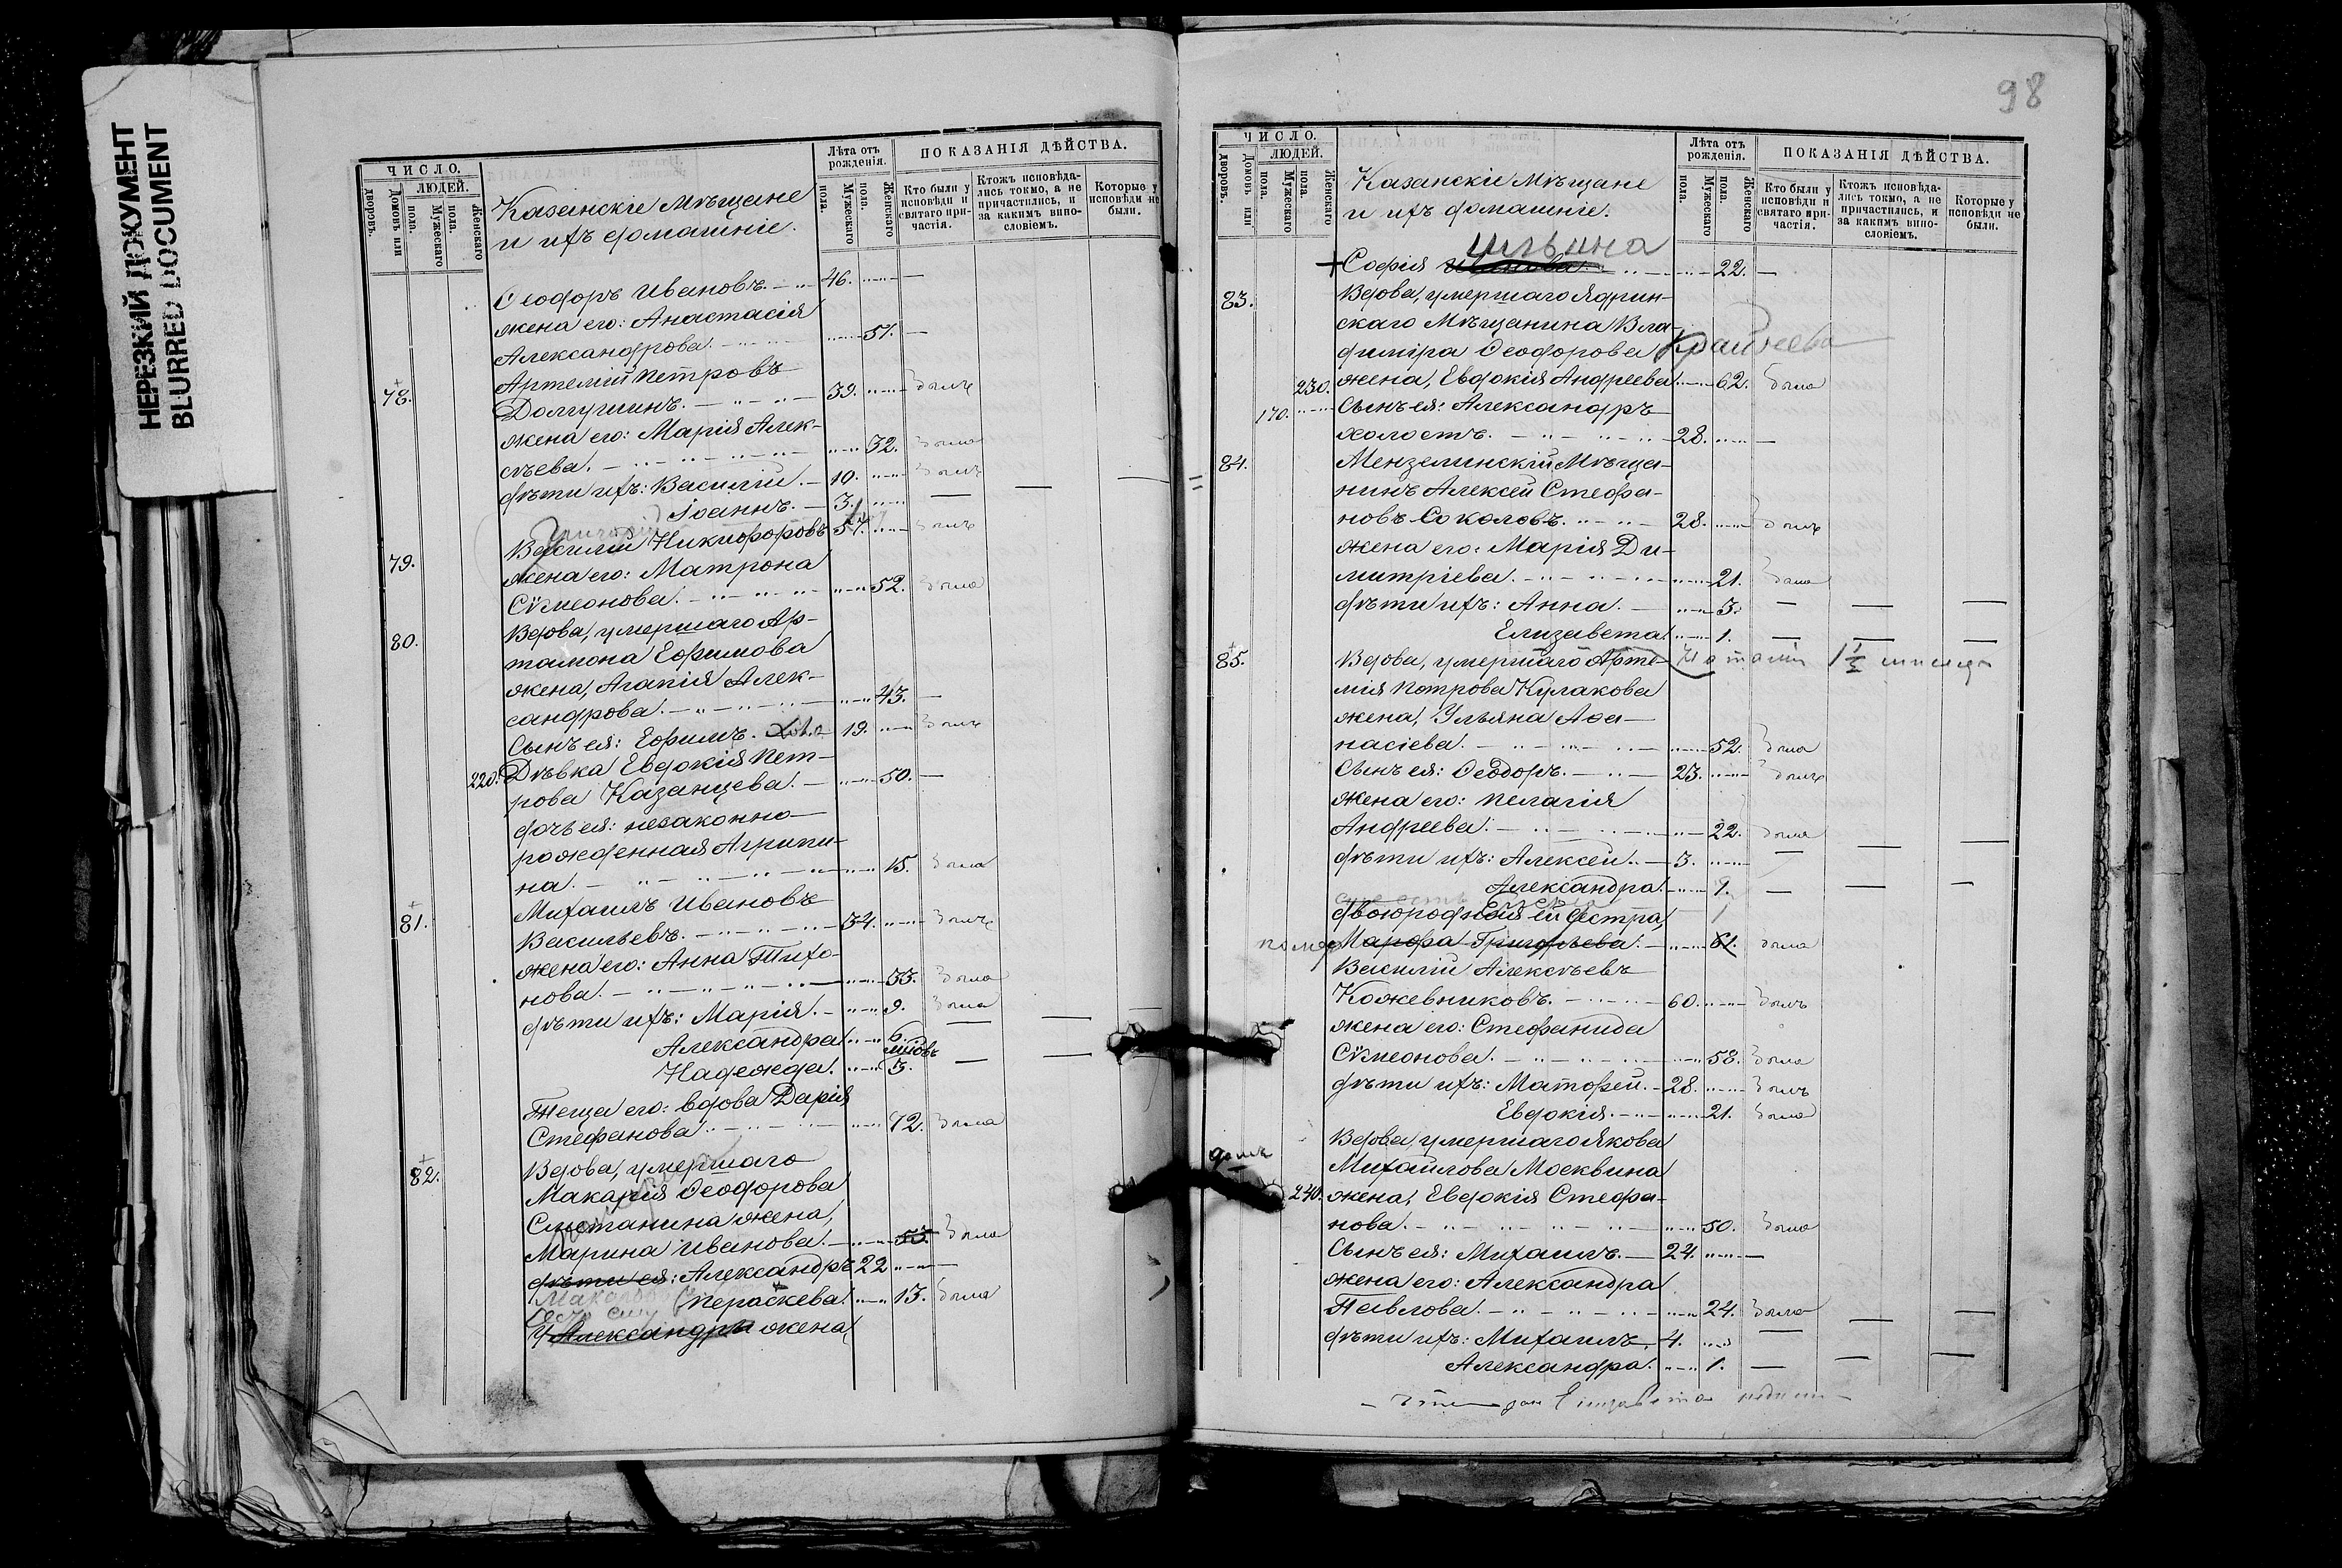 НЕРЕЗКИЙ ДОКУМЕНТ
BLURRED DOCUMENT
ЧИСЛО.
Дворовъ.
Домовъ или
ЛЮДЕЙ.
Мужескаго пола.
Женскаго пола.
Казанскіе Мѣщане
и ихъ домашніе.
Лѣта отъ рожденія.
Мужескаго пола.
Женскаго пола.
ПОКАЗАНІЯ ДѢЙСТВА.
Кто были у исповѣди и святаго причастія.
Ктожъ исповѣдались токмо, а не причастились, и за какимъ винословіемъ.
Которые у исповѣди не были.
Ѳеодоръ Ивановъ. 46. —
жена его: Анастасія
Александрова. 51. —
Артемій Петровъ
78. Долгушинъ. 39. былъ
жена его: Марія Алек-
сѣева. 32. была
дѣти ихъ: Василій. 10. былъ
Іоаннъ. 3. — — —
Григорій
Василій Никифоровъ 57. былъ
79. жена его: Матрона
Сѵмеонова. 52. была
80. Вдова, умершаго Ар-
тамона Ефимова
жена, Агапія Алек-
сандрова. 43. —
Сынъ ея: Ефимъ. 19. былъ
220. Дѣвка Евдокія Пет-
рова Казанцева. 50. —
дочь ея: незаконно-
рожденная Агрипи-
на. 15. была
Михаилъ Ивановъ
81. Васильевъ. 34. былъ
жена его: Анна Тихо-
нова. 33. была
дѣти ихъ: Марія. 9. была
Александра 6. — — —
мцовъ
Надежда. 5. — —
Теща его: вдова Дарія
Стефанова 72. была
82. Вдова, умершаго
Макарія Ѳеодорова
Сметанина жена,
Марина Иванова. 53. была
дѣти ея: Александръ 22 —
Параскева. 13. была
у Александра жена,
98
ЧИСЛО.
Дворовъ.
Домовъ или
ЛЮДЕЙ.
Мужескаго пола.
Женскаго пола.
Казанскіе Мѣщане
и ихъ домашніе.
Лѣта отъ рожденія.
Мужескаго пола.
Женскаго пола.
ПОКАЗАНІЯ ДѢЙСТВА.
Кто были у исповѣди и святаго причастія.
Ктожъ исповѣдались токмо, а не причастились, и за какимъ винословіемъ.
Которые у исповѣди не были.
Ильина
+ Софія Иванова. 22. —
83. Вдова, умершаго Ядрин-
скаго Мѣщанина Вла-
диміра Ѳеодорова
230. жена, Евдокія Андреева. 62. была
170. Сынъ ея: Александръ
холостъ. 28. —
84. Мензелинскій Мѣща-
нинъ Алексѣй Стефа-
новъ Соколовъ. 28. былъ
жена его: Марія Ди-
митріева. 21. была
дѣти ихъ: Анна. 3. — — —
Елизавета. 1. — — —
85. Вдова, умершаго Арте-
мія Петрова Кулакова
жена, Ульяна Аѳа-
насіева. 52. была
Сынъ ея: Ѳеодоръ. 23. былъ
жена его: Пелагія
Андреева. 22. была
дѣти ихъ: Алексѣй. 3. — — —
Александра. 1. — — —
двоюродная ей сестра,
Марфа Григорьева. 61. была
Василій Алексѣевъ
Кожевниковъ. 60. былъ
жена его: Стефанида
Сѵмеонова. 58. была
дѣти ихъ: Матфей. 28. былъ
Евдокія. 21. была
Вдова, умершаго Якова
Михайлова Москвина
240. жена, Евдокія Стефа-
нова. 50. была
Сынъ ея: Михаилъ. 24. —
жена его: Александра
Павлова. 24. была
дѣти ихъ: Михаилъ. 4. — — —
Александра. 1. — — —